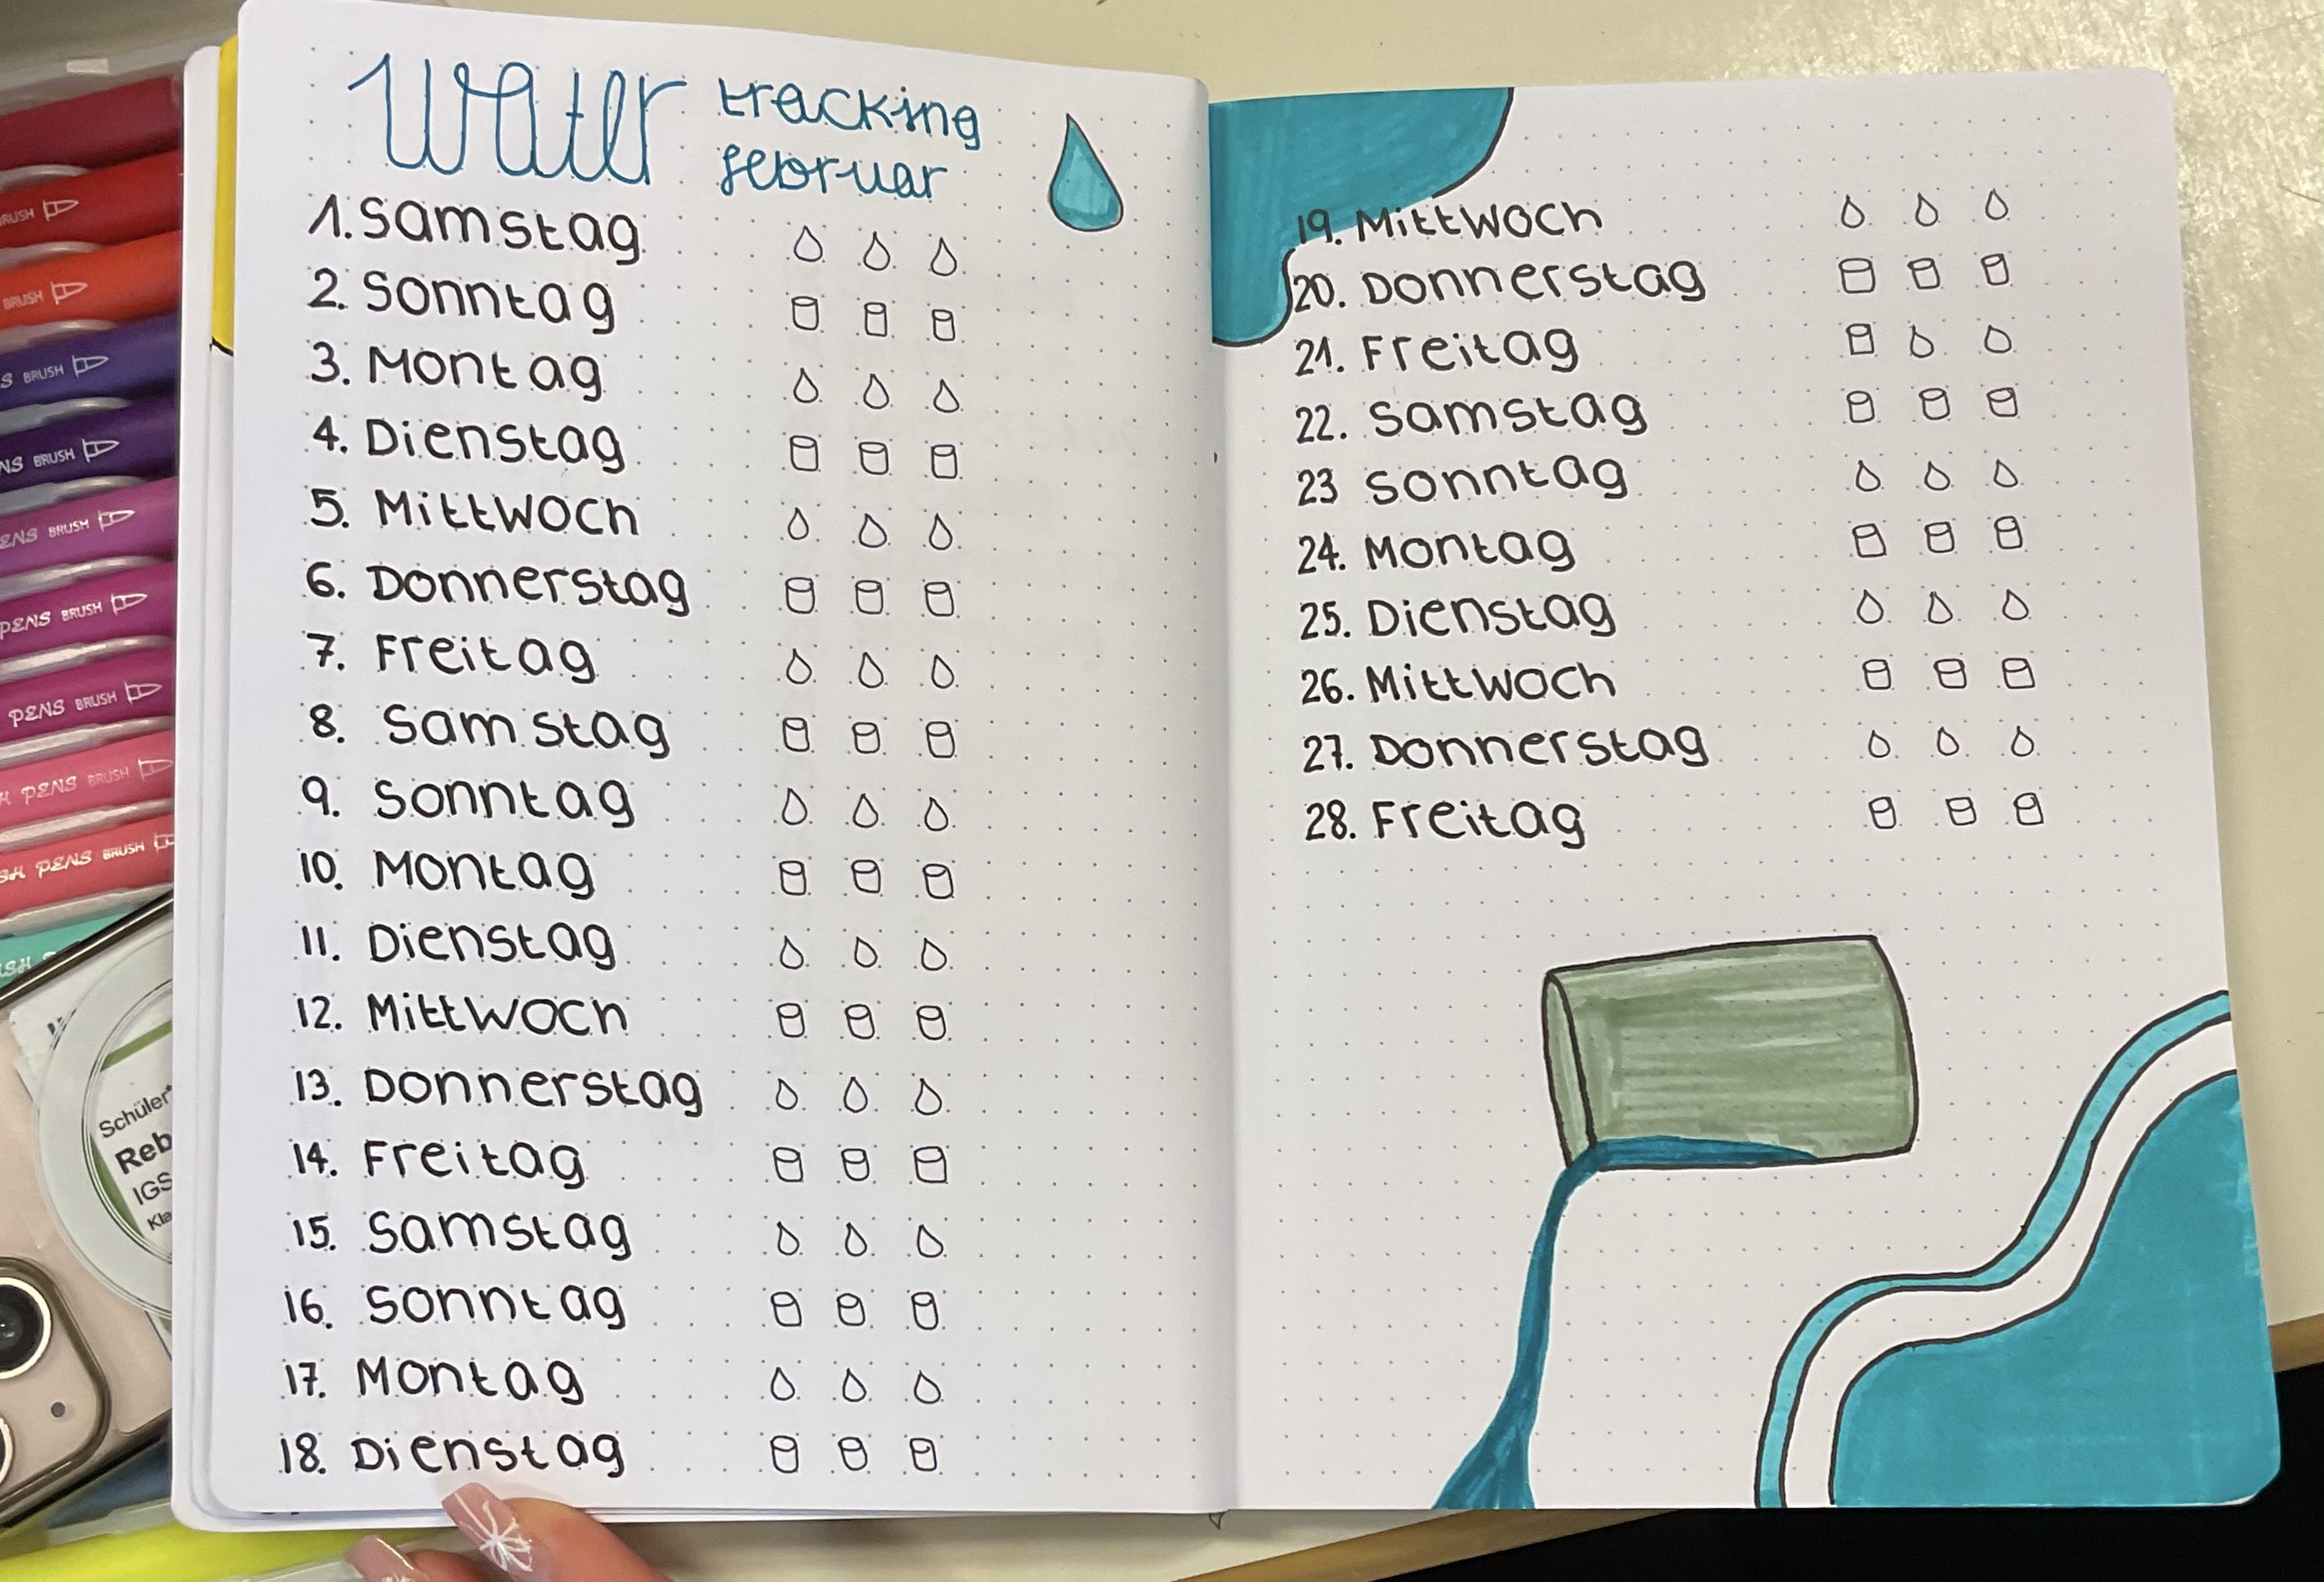 Water tracking
februar
1. Samstag
2. Sonntag
3. Montag
4. Dienstag
5. Mittwoch
6. Donnerstag
7. Freitag
8. Samstag
9. Sonntag
10. Montag
11. Dienstag
12. Mittwoch
13. Donnerstag
14. Freitag
15. Samstag
16. Sonntag
17. Montag
18. Dienstag
19. Mittwoch
20. Donnerstag
21. Freitag
22. Samstag
23 Sonntag
24. Montag
25. Dienstag
26. Mittwoch
27. Donnerstag
28. Freitag
BRUSH
BRUSH
BRUSH
BRUSH
BRUSH
PENS BRUSH
PENS BRUSH
PENS BRUSH
PENS BRUSH
Schüler
IGS